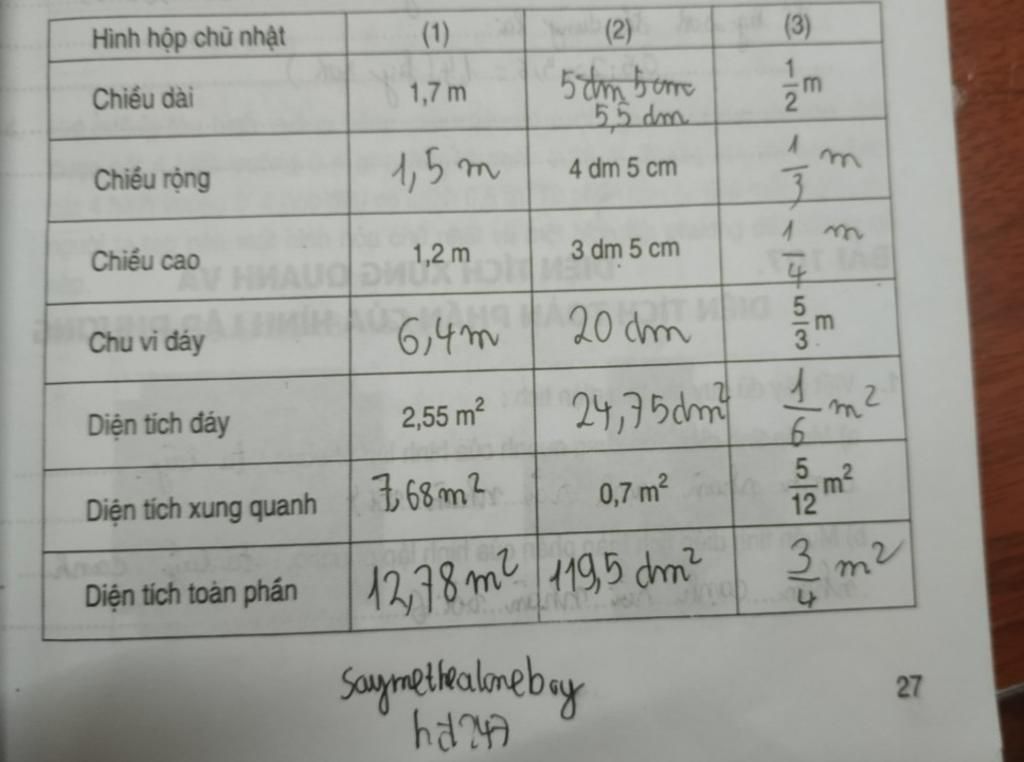 Hình hộp chữ nhật (1) (2) (3)
Chiều dài 1,7 m 5 dm 5 cm 1/2 m
5,5 dm
Chiều rộng 1,5 m 4 dm 5 cm 1/3 m
Chiều cao 1,2 m 3 dm 5 cm 1/4 m
Chu vi đáy 6,4 m 20 dm 5/3 m
Diện tích đáy 2,55 m² 24,75 dm² 1/6 m²
Diện tích xung quanh 7,68 m² 0,7 m² 5/12 m²
Diện tích toàn phần 12,78 m² 119,5 dm² 3/4 m²
saymethealoneboy
27